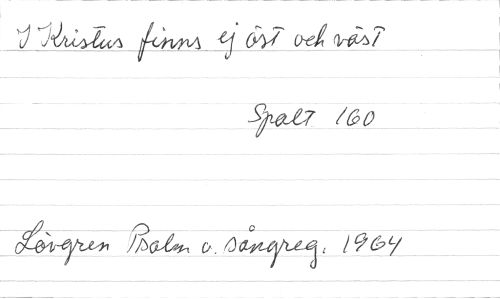 I Kristus finns ej öst och väst
Spalt 160
Lövgren Psalm o. sångreg. 1964